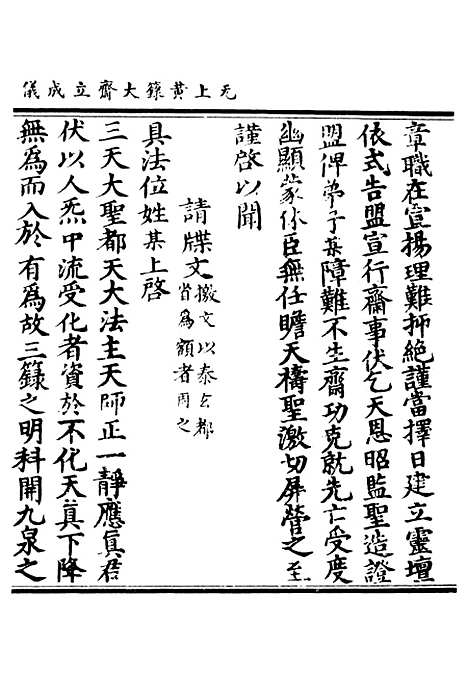 无上黄籙大齋立成儀
章職在宣揚理難抑絶謹當擇日建立靈壇
依式告盟宣行齋事伏乞天恩昭監聖造證
盟俾弟子某障難不生齋功克就先亡受度
幽顯蒙休臣無任瞻天禱聖激切屏營之至
謹啓以聞
請牒文撥文以泰玄都省爲額者用之
具法位姓某上啓
三天大聖都天大法主天師正一靜應真君
伏以人炁中流受化者資於不化天真下降
無爲而入於有爲故三籙之明科開九泉之